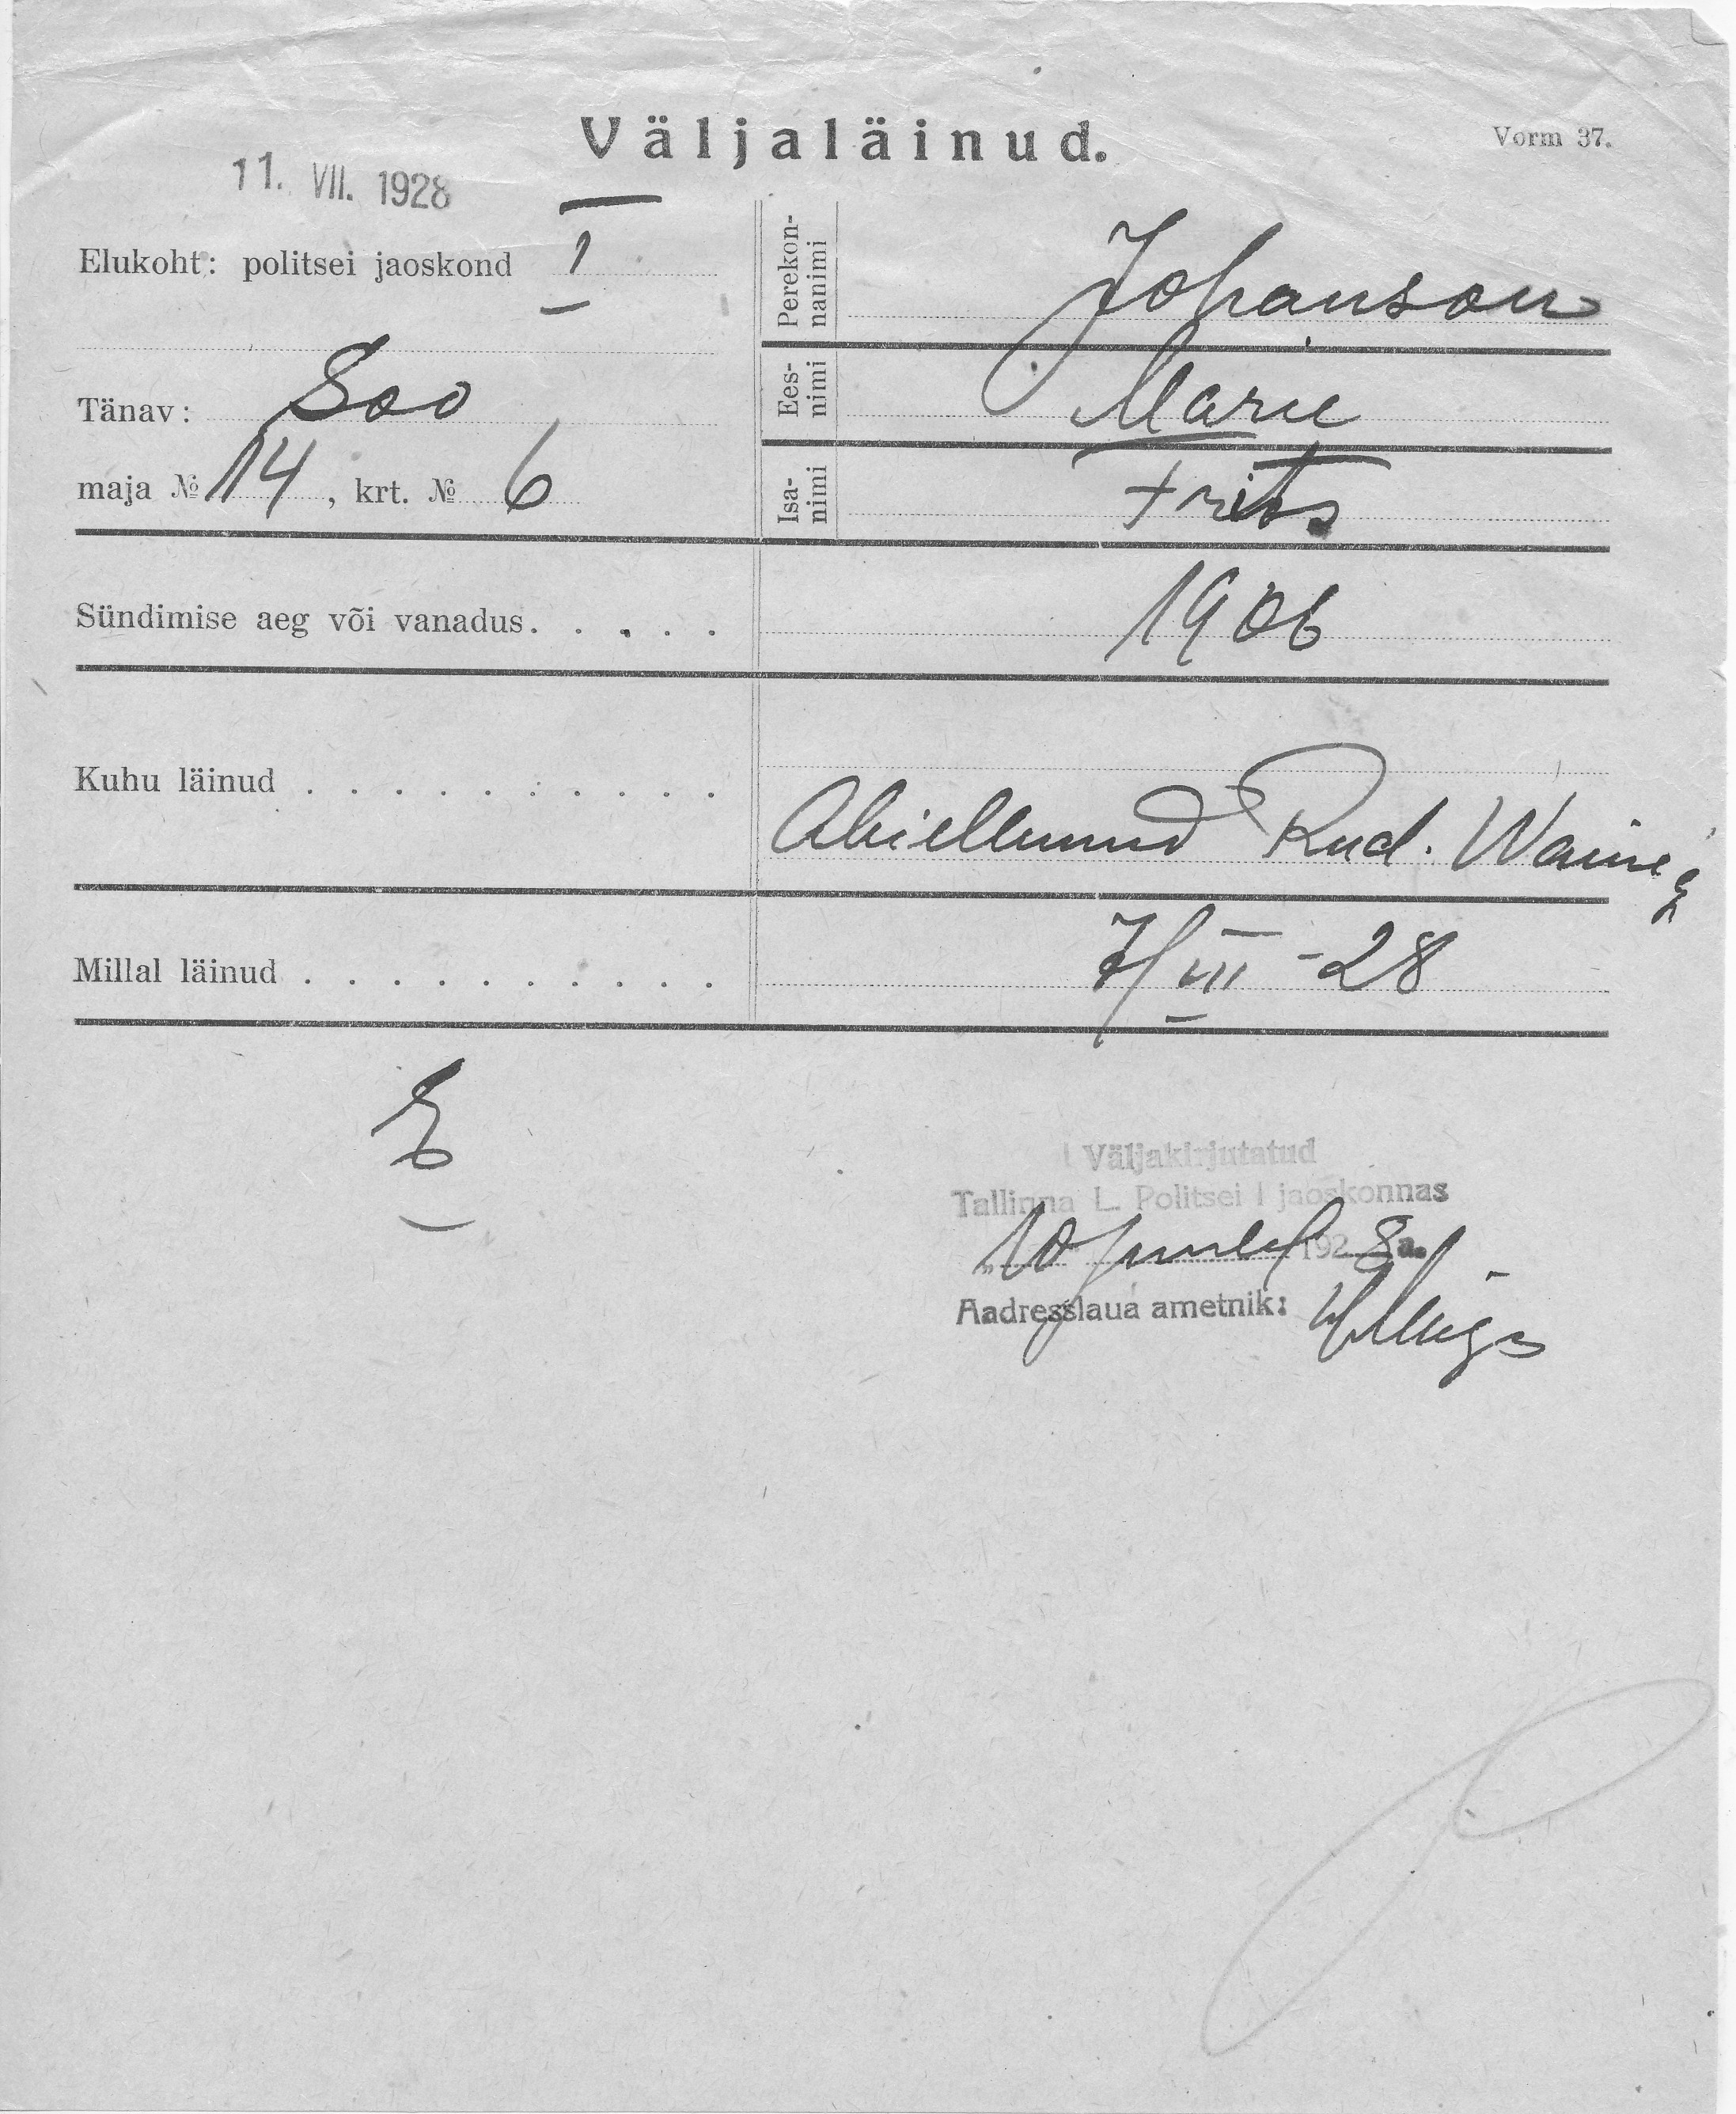 Väljaläinud.
Vorm 37.
11. VII. 1928
Elukoht: politsei jaoskond I
Tänav: Soo
maja № 14, krt. № 6
Perekon-
nanimi
Johanson
Ees-
nimi
Marie
Isa-
nimi
Frits
Sündimise aeg või vanadus. . . . .
1906
Kuhu läinud . . . . . . . . . .
Abiellunud Rud. Waine
Millal läinud . . . . . . . . . .
7/III -28
Väljakirjutatud
Tallinna L. Politsei I jaoskonnas
„10 192 8 a.
Aadresslaua ametnik: